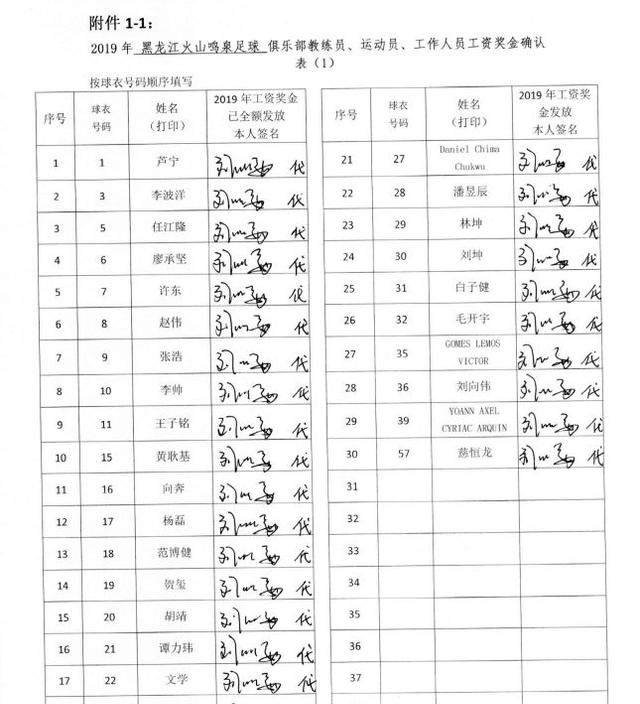 附件 1-1：
2019 年 黑龙江火山鸣泉足球 俱乐部教练员、运动员、工作人员工资奖金确认
表（1）
按球衣号码顺序填写
序号 球衣号码 姓名（打印） 2019 年工资奖金已全额发放本人签名
1 1 芦宁 代
2 3 李波洋 代
3 5 任江隆 代
4 6 廖承坚 代
5 7 许东 代
6 8 赵伟 代
7 9 张浩 代
8 10 李帅 代
9 11 王子铭 代
10 15 黄耿基 代
11 16 向奔 代
12 17 杨磊 代
13 18 范博健 代
14 19 贺玺 代
15 20 胡靖 代
16 21 谭力玮 代
17 22 文学 代
序号 球衣号码 姓名（打印） 2019 年工资奖金发放本人签名
21 27 Daniel Chima Chukwu 代
22 28 潘昱辰 代
23 29 林坤 代
24 30 刘坤 代
25 31 白子健 代
26 32 毛开宇 代
27 35 GOMES LEMOS VICTOR 代
28 36 刘向伟 代
29 39 YOANN AXEL CYRIAC ARQUIN 代
30 57 慈恒龙 代
31
32
33
34
35
36
37